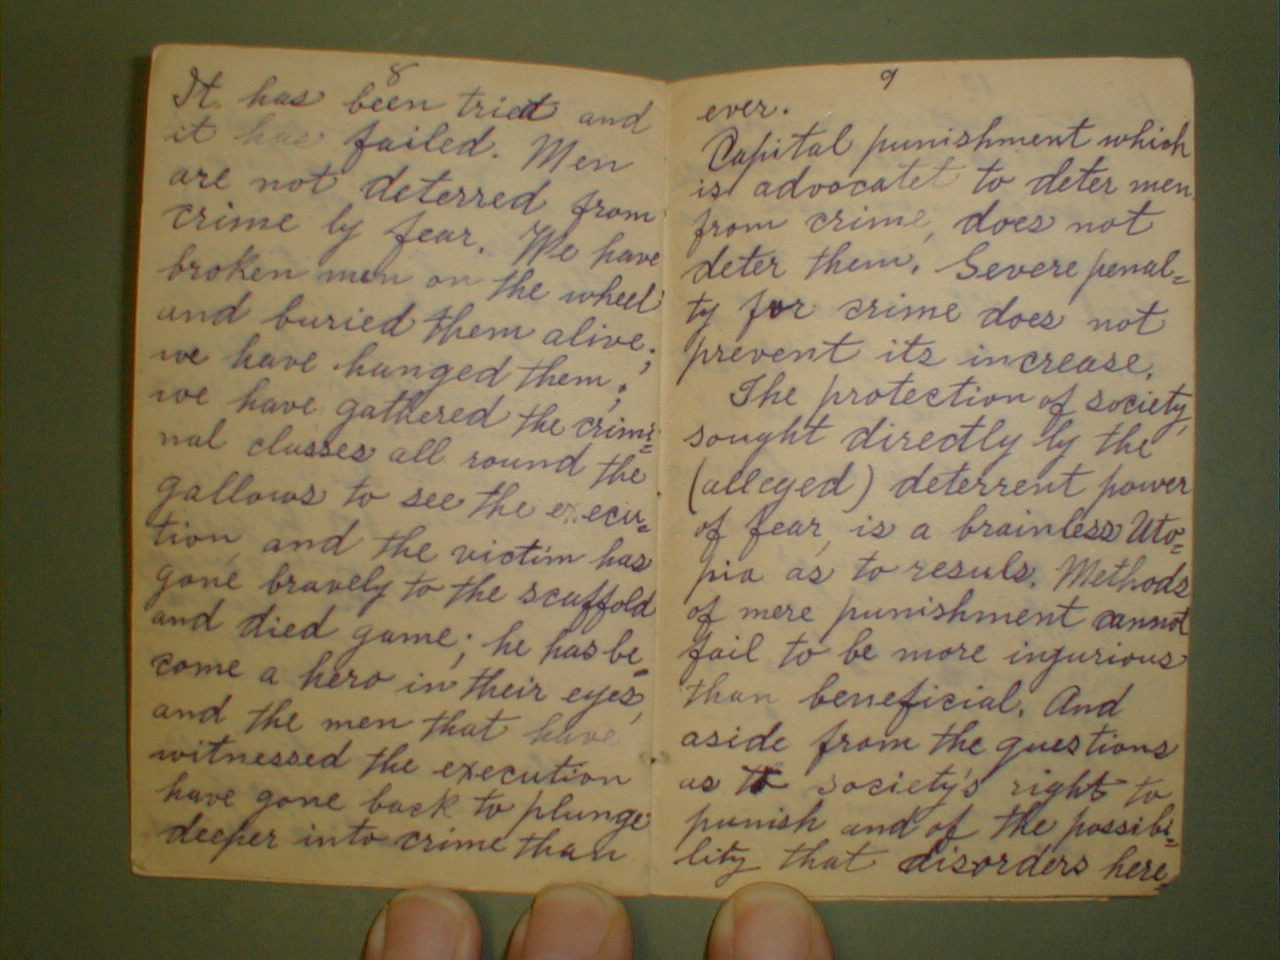 8
It has been tried and
it has failed. Men
are not deterred from
crime by fear. We have
broken men on the wheel
and buried them alive;
we have hanged them;
we have gathered the crimi=
nal classes all round the
gallows to see the execu=
tion, and the victim has
gone bravely to the scaffold
and died game; he has be=
come a hero in their eyes,
and the men that have
witnessed the execution
have gone back to plunge
deeper into crime than
9
ever.
Capital punishment which
is advocatet to deter men
from crime, does not
deter them. Severe penal=
ty for crime does not
prevent its increase.
The protection of society,
sought directly by the
(alleged) deterrent power
of fear, is a brainless Uto=
pia as to resuls. Methods
of mere punishment cannot
fail to be more injurious
than beneficial. And
aside from the questions
as to society's right to
punish and of the possibi=
lity that disorders here=